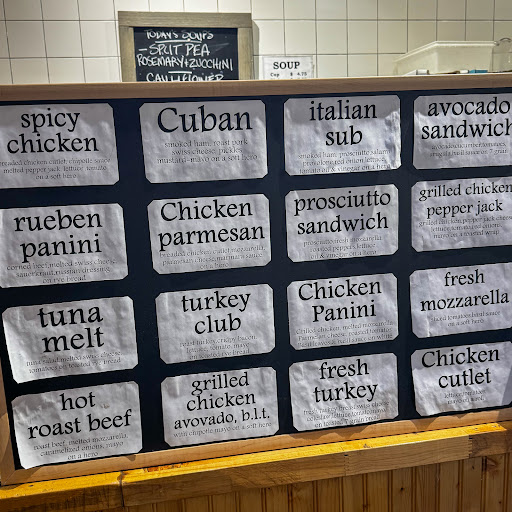 TODAY'S SOUPS
-SPLIT PEA
ROSEMARY+ZUCCHINI
CAULIFLOWER
SOUP
Cup $
spicy
chicken
breaded chicken cutlet, chipotle sauce
melted pepper jack, lettuce, tomato
on a soft hero
Cuban
smoked ham, roast pork
swiss cheese, pickles
mustard-mayo on a soft hero
italian
sub
smoked ham, prosciutto, salami
provolone, red onion, lettuce,
tomato, oil & vinegar on a hero
avocado
sandwich
avocado, cucumber, tomatoes,
rueben
panini
corned beef, melted swiss cheese
sauerkraut, russian dressing
on rye bread
Chicken
parmesan
breaded chicken cutlet, mozzarella
parmesan cheese, marinara sauce
on a hero
prosciutto
sandwich
prosciutto, fresh mozzarella
peppers, lettuce
oil & vinegar on a hero
grilled chicken
pepper jack
grilled chicken, pepper jack cheese
tuna
melt
tuna salad, melted swiss cheese
tomatoes on toasted rye bread
turkey
club
turkey, crispy bacon
lettuce, tomato, mayo
on toasted rye bread
Chicken
Panini
Grilled chicken, melted mozzarella
Parmesan cheese, roasted tomato
fresh
mozzarella
sliced tomato, basil
on a soft hero
hot
roast beef
roast beef, melted mozzarella,
caramelized onions, mayo
on a hero
grilled
chicken
avovado, b.l.t.
with chipotle mayo on a soft hero
fresh
turkey
fresh turkey breast, swiss cheese
on toasted 7 grain bread
Chicken
cutlet
lettuce, tomato
mayo on a hero